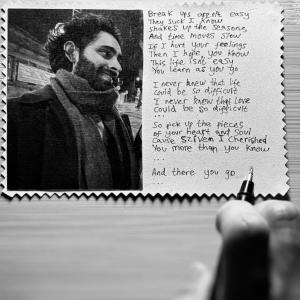 Break ups aren't easy
They suck I know
shakes up the seasons,
And time moves slow
If I hurt your feelings
Then I hope, you know
This life isn't easy
You learn as you go
I never knew that life
could be so difficult
I never knew that love
Could be so difficult
...
So pick up the pieces
of your heart and soul
Cause Szívem I cherished
You more than you know
...
And there you go
...